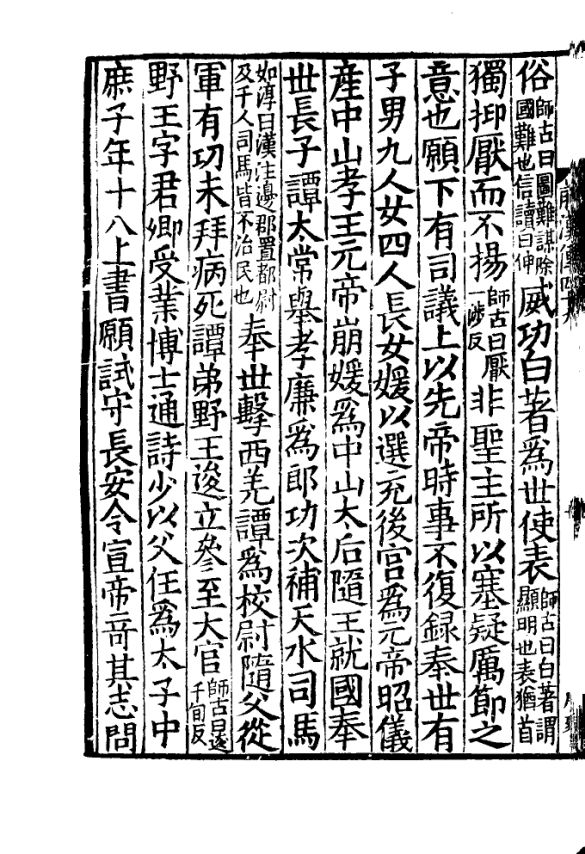 俗師古曰圖難謀除國難也信讀曰伸威功白著爲世使表師古曰白著謂顯明也表猶首
獨抑厭而不揚師古曰厭涉反非聖主所以塞疑厲節之
意也願下有司議上以先帝時事不復録奉世有
子男九人女四人長女媛以選充後宫爲元帝昭儀
産中山孝王元帝崩媛爲中山太后隨王就國奉
世長子譚太常舉孝廉爲郎功次補天水司馬
如淳曰漢注邊郡置都尉及千人司馬皆不治民也奉世擊西羌譚爲校尉隨父從
軍有功未拜病死譚弟野王逡立參至大官師古曰逡千旬反
野王字君卿受業博士通詩少以父任爲太子中
庶子年十八上書願試守長安令宣帝竒其志問